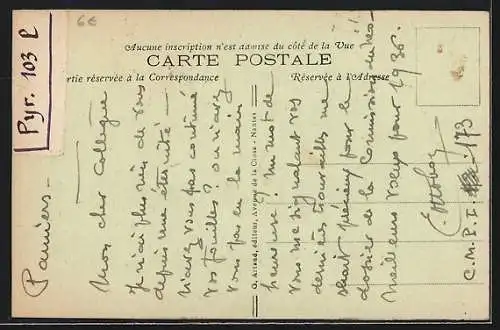 6€
Pyr. 103 P
Aucune inscription n'est admise du côté de la Vue
CARTE POSTALE
Partie réservée à la Correspondance
Réservée à l'Adresse
G. Artaud, éditeur, Avenue de la Close - Nantes
Pamiers -
Mon cher Collègue
Je n'ai plus rien de vous
depuis une éternité -
N'avez vous pas continué
vos fouilles? ou n'avez
vous pas eu la main
heureuse! Un mot de
vous me signalant vos
dernières trouvailles me
serait précieux pour le
dossier de la Commission
Meilleurs voeux pour 1936.
C.M.P.I. 173